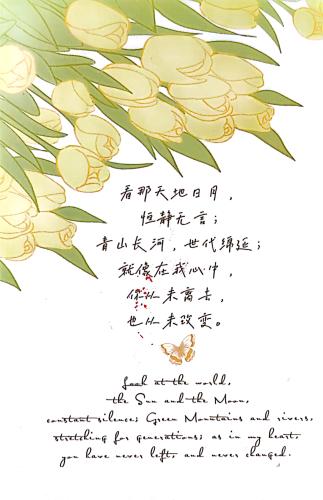 看那天地日月，
恒静无言；
青山长河，世代绵延；
就像在我心中，
你从未离去，
也从未改变。
Look at the world,
the Sun and the Moon,
constant silence; Green Mountains and rivers,
stretching for generations; as in my heart,
you have never left, and never changed.